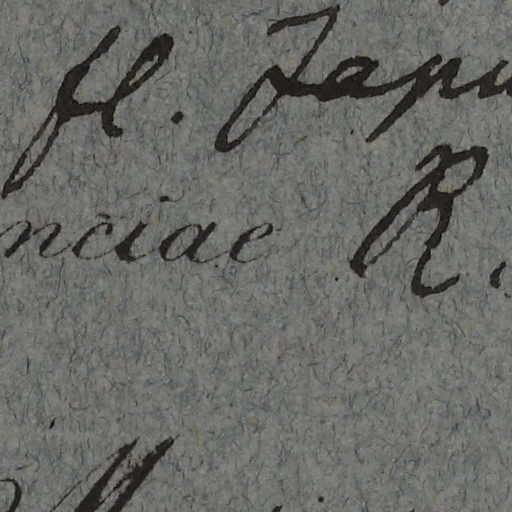 fl. Japu
nciae R.
M